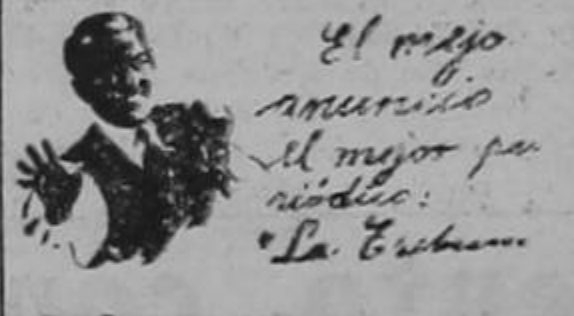 El mejo
anuncio
el mejor pe-
riódico:
"La Tribun